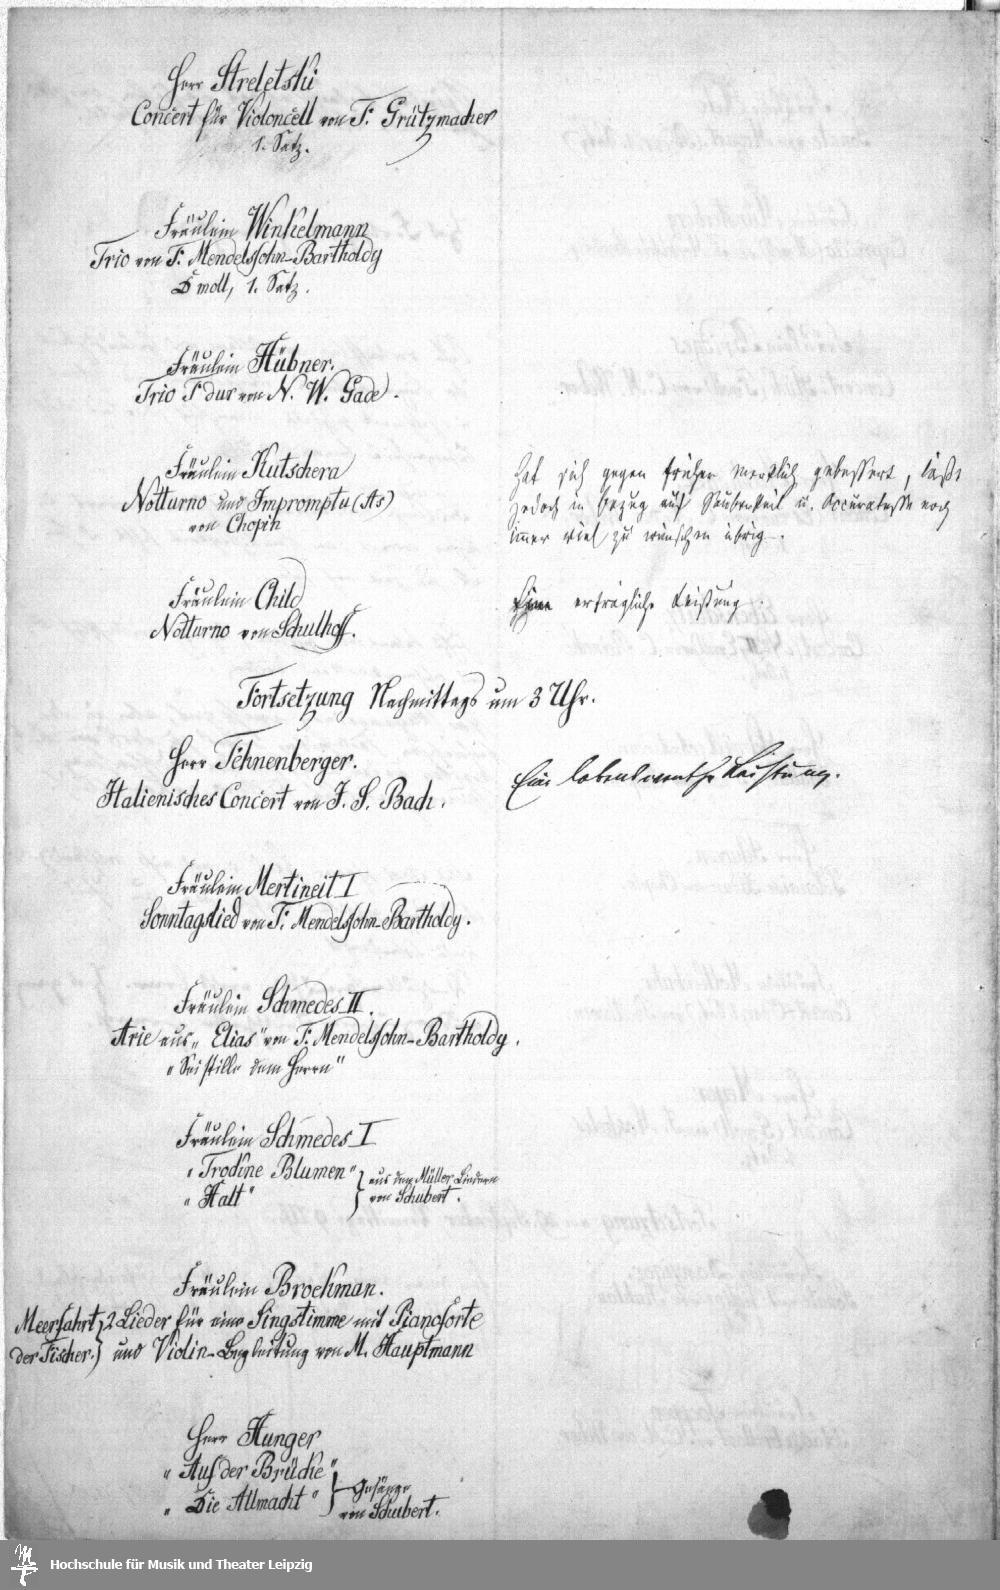 Herr Streletski
Concert für Violoncell von F. Grützmacher
1. Satz.
Fräulein Winkelmann
Trio von F. Mendelssohn-Bartholdy
D moll, 1. Satz.
Fräulein Hübner.
Trio F dur von N. W. Gade.
Fräulein Kutschera
Notturno und Impromptu (As)
von Chopin
Hat sich gegen früher merklich gebessert, läßt
jedoch in Bezug auf Sauberkeit u. Accuratesse noch
imer viel zu wünschen übrig.
Fräulein Child
Notturno von Schulhoff.
Eine erträgliche Leistung.
Fortsetzung Nachmittags um 3 Uhr.
Herr Fehnenberger.
Italienisches Concert von J. S. Bach.
Eine lobenswerthe Leistung.
Fräulein Mertineit I
Sonntagslied von F. Mendelssohn-Bartholdy.
Fräulein Schmedes II.
Arie aus „Elias" von F. Mendelssohn-Bartholdy.
„Sei stille dem Herrn"
Fräulein Schmedes I
„Trockne Blumen"
„Halt"
aus den Müller Liedern
von Schubert.
Fräulein Brockman.
Meerfahrt } 2 Lieder für eine Singstimme mit Pianoforte
der Fischer. } und Violin-Begleitung von M. Hauptmann
Herr Hunger
„Auf der Brücke"
„Die Allmacht"
Gesänge
von Schubert.
Hochschule für Musik und Theater Leipzig